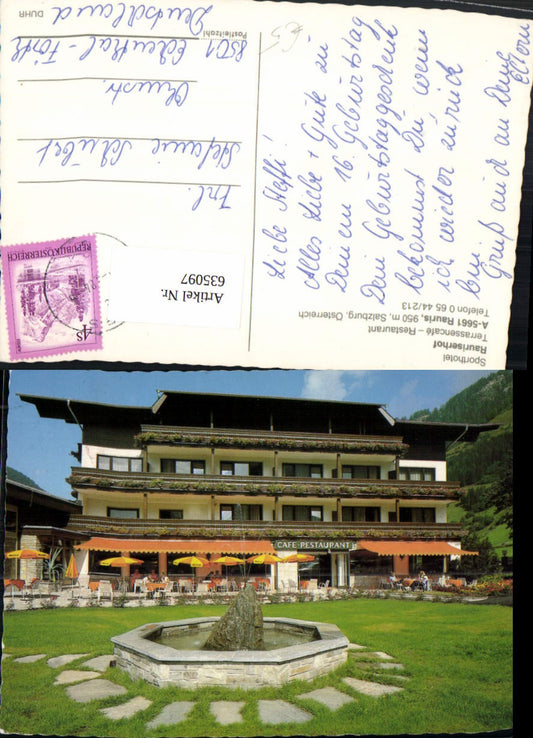 Liebe Steffi!
Alles Liebe + Gute zu
Deinem 16. Geburtstag
Dein Geburtstaggeschenk
bekommst Du wenn
ich wieder zurück
bin
Gruß auch an Deine
Eltern
Frl.
Stefanie Schubert
8501 Eckenthal-Forth
Deutschland
Postleitzahl
DUHR
REPUBLIK ÖSTERREICH
4 S
Artikel Nr.
635097
Sporthotel
Rauriserhof
Terrassencafé – Restaurant
A-5661 Rauris, 950 m, Salzburg, Österreich
Telefon 0 65 44/213
CAFE-RESTAURANT